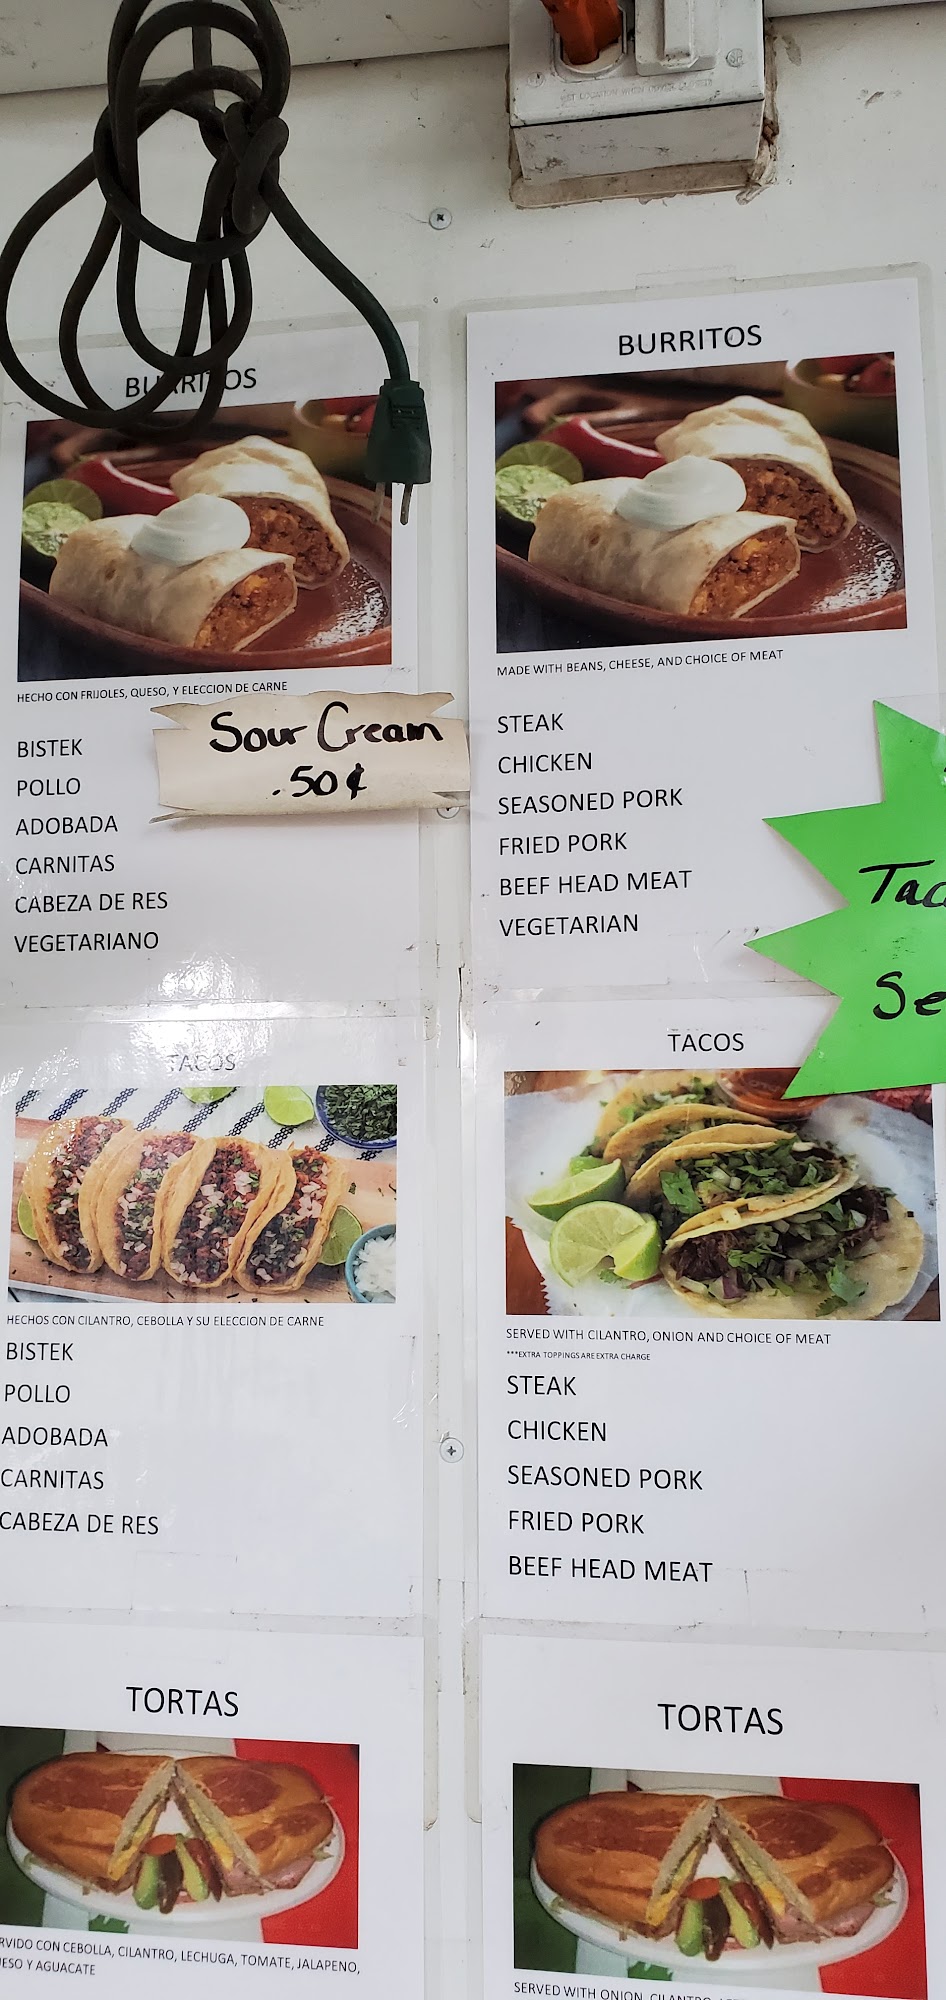 BURRITOS
HECHO CON FRIJOLES, QUESO, Y ELECCION DE CARNE
Sour Cream
.50¢
BISTEK
POLLO
ADOBADA
CARNITAS
CABEZA DE RES
VEGETARIANO
TACOS
HECHOS CON CILANTRO, CEBOLLA Y SU ELECCION DE CARNE
BISTEK
POLLO
ADOBADA
CARNITAS
CABEZA DE RES
TORTAS
CON CEBOLLA, CILANTRO, LECHUGA, TOMATE, JALAPENO,
Y AGUACATE
BURRITOS
MADE WITH BEANS, CHEESE, AND CHOICE OF MEAT
STEAK
CHICKEN
SEASONED PORK
FRIED PORK
BEEF HEAD MEAT
VEGETARIAN
TACOS
SERVED WITH CILANTRO, ONION AND CHOICE OF MEAT
***EXTRA TOPPINGS ARE EXTRA CHARGE
STEAK
CHICKEN
SEASONED PORK
FRIED PORK
BEEF HEAD MEAT
TORTAS
SERVED WITH ONION, CILANTRO,